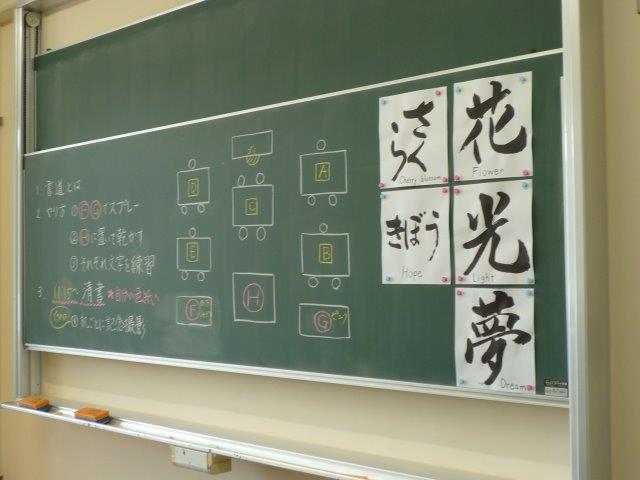 1. 書道とは
2. やり方 ①F Gでスプレー
②Hに置いて乾かす
③それぞれ文字を練習
3. 清書
④班ごとに記念撮影
A
B
C
D
E
F
G
H
さくら
Cherry Blossom
花
Flower
きぼう
Hope
光
Light
夢
Dream